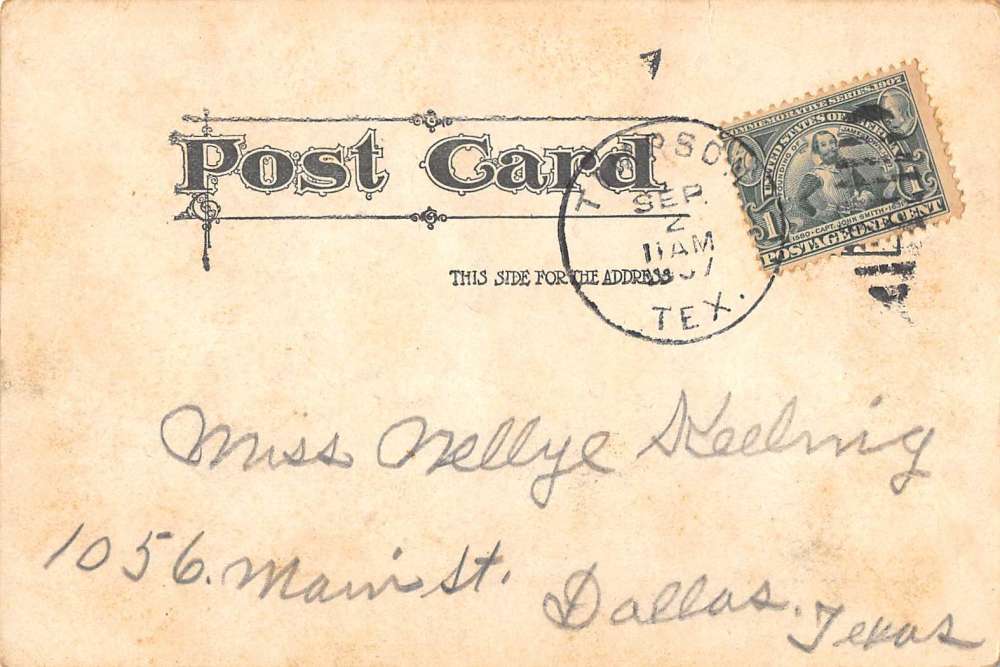 Post Card
THIS SIDE FOR THE ADDRESS
SEP.
2
11 AM
TEX.
COMMEMORATIVE SERIES, 1907
UNITED STATES OF AMERICA
1580 · CAPT. JOHN SMITH ·
1 1
POSTAGE ONE CENT
Miss Nellye Keeling
1056. Main St.
Dallas. Texas